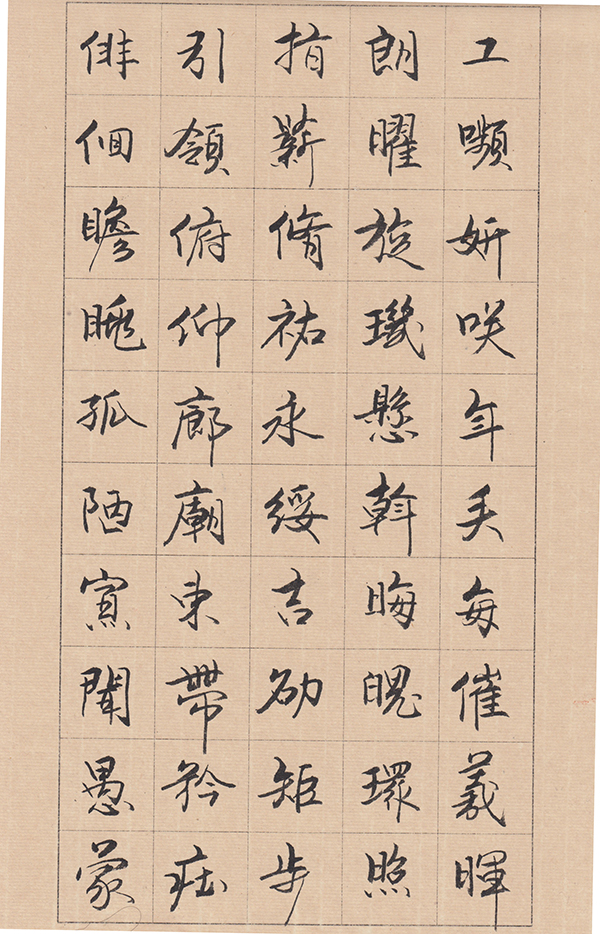 工嚬妍咲年矢每催羲暉
朗曜旋璣懸斡晦魄環照
指薪脩祐永綏吉劭矩步
引領俯仰廊廟束帶矜莊
俳佪瞻眺孤陋寡聞愚蒙